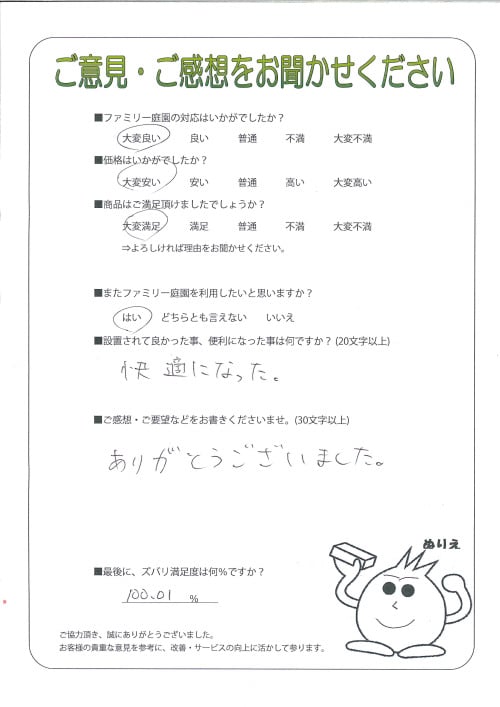 ご意見・ご感想をお聞かせください
■ファミリー庭園の対応はいかがでしたか？
大変良い 良い 普通 不満 大変不満
■価格はいかがでしたか？
大変安い 安い 普通 高い 大変高い
■商品はご満足頂けましたでしょうか？
大変満足 満足 普通 不満 大変不満
⇒よろしければ理由をお聞かせください。
■またファミリー庭園を利用したいと思いますか？
はい どちらとも言えない いいえ
■設置されて良かった事、便利になった事は何ですか？(20文字以上)
快適になった。
■ご感想・ご要望などをお書きくださいませ。(30文字以上)
ありがとうございました。
ぬりえ
■最後に、ズバリ満足度は何％ですか？
100.01 %
ご協力頂き、誠にありがとうございました。
お客様の貴重な意見を参考に、改善・サービスの向上に活かして参ります。